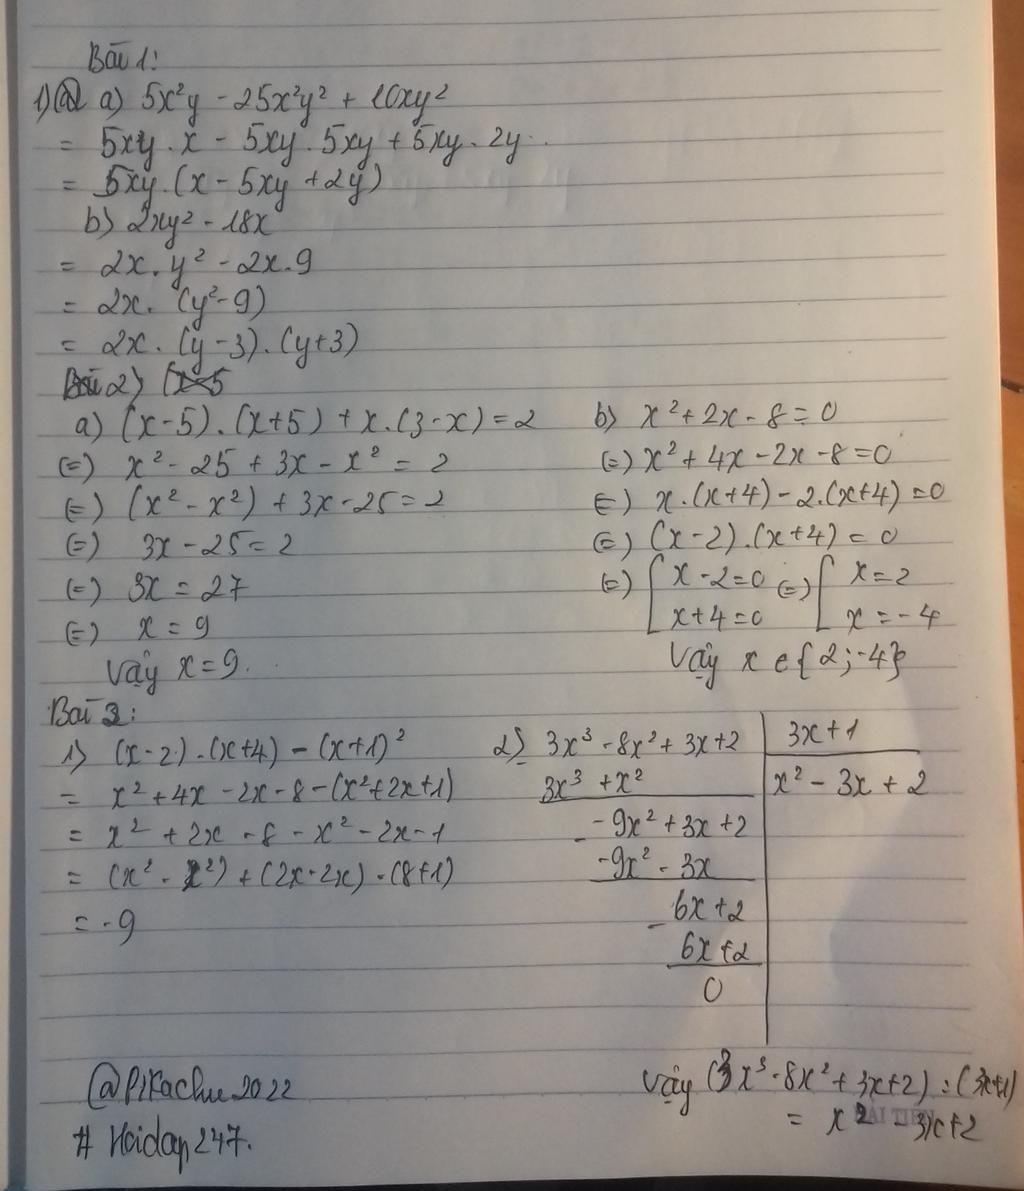 Bài 1:
1) a) 5x²y - 25x²y² + 10xy²
= 5xy . x - 5xy . 5xy + 5xy . 2y.
= 5xy.(x - 5xy + 2y)
b) 2xy² - 18x
= 2x. y² - 2x.9
= 2x. (y²-9)
= 2x . (y-3).(y+3)
2)
a) (x-5).(x+5) + x.(3-x) = 2
(=) x² - 25 + 3x - x² = 2
(=) (x² - x²) + 3x - 25 = 2
(=) 3x - 25 = 2
(=) 3x = 27
(=) x = 9
Vậy x = 9.
b) x² + 2x - 8 = 0
(=) x² + 4x - 2x - 8 = 0
(=) x.(x+4) - 2.(x+4) = 0
(=) (x-2).(x+4) = 0
(=) [ x - 2 = 0 (=) [ x = 2
x + 4 = 0 x = -4
Vậy x e {2;-4}
Bài 3:
1) (x-2).(x+4) - (x+1)²
= x² + 4x - 2x - 8 - (x²+2x+1)
= x² + 2x - 8 - x² - 2x - 1
= (x² - x²) + (2x - 2x) - (8+1)
= -9
2) 3x³ - 8x² + 3x + 2 | 3x + 1
3x³ + x² | x² - 3x + 2
- -9x² + 3x + 2
-9x² - 3x
- 6x + 2
6x + 2
0
Vậy (3x³ - 8x² + 3x + 2) : (3x+1)
= x² - 3x + 2
@Pikachue2022
# Hoidap247.